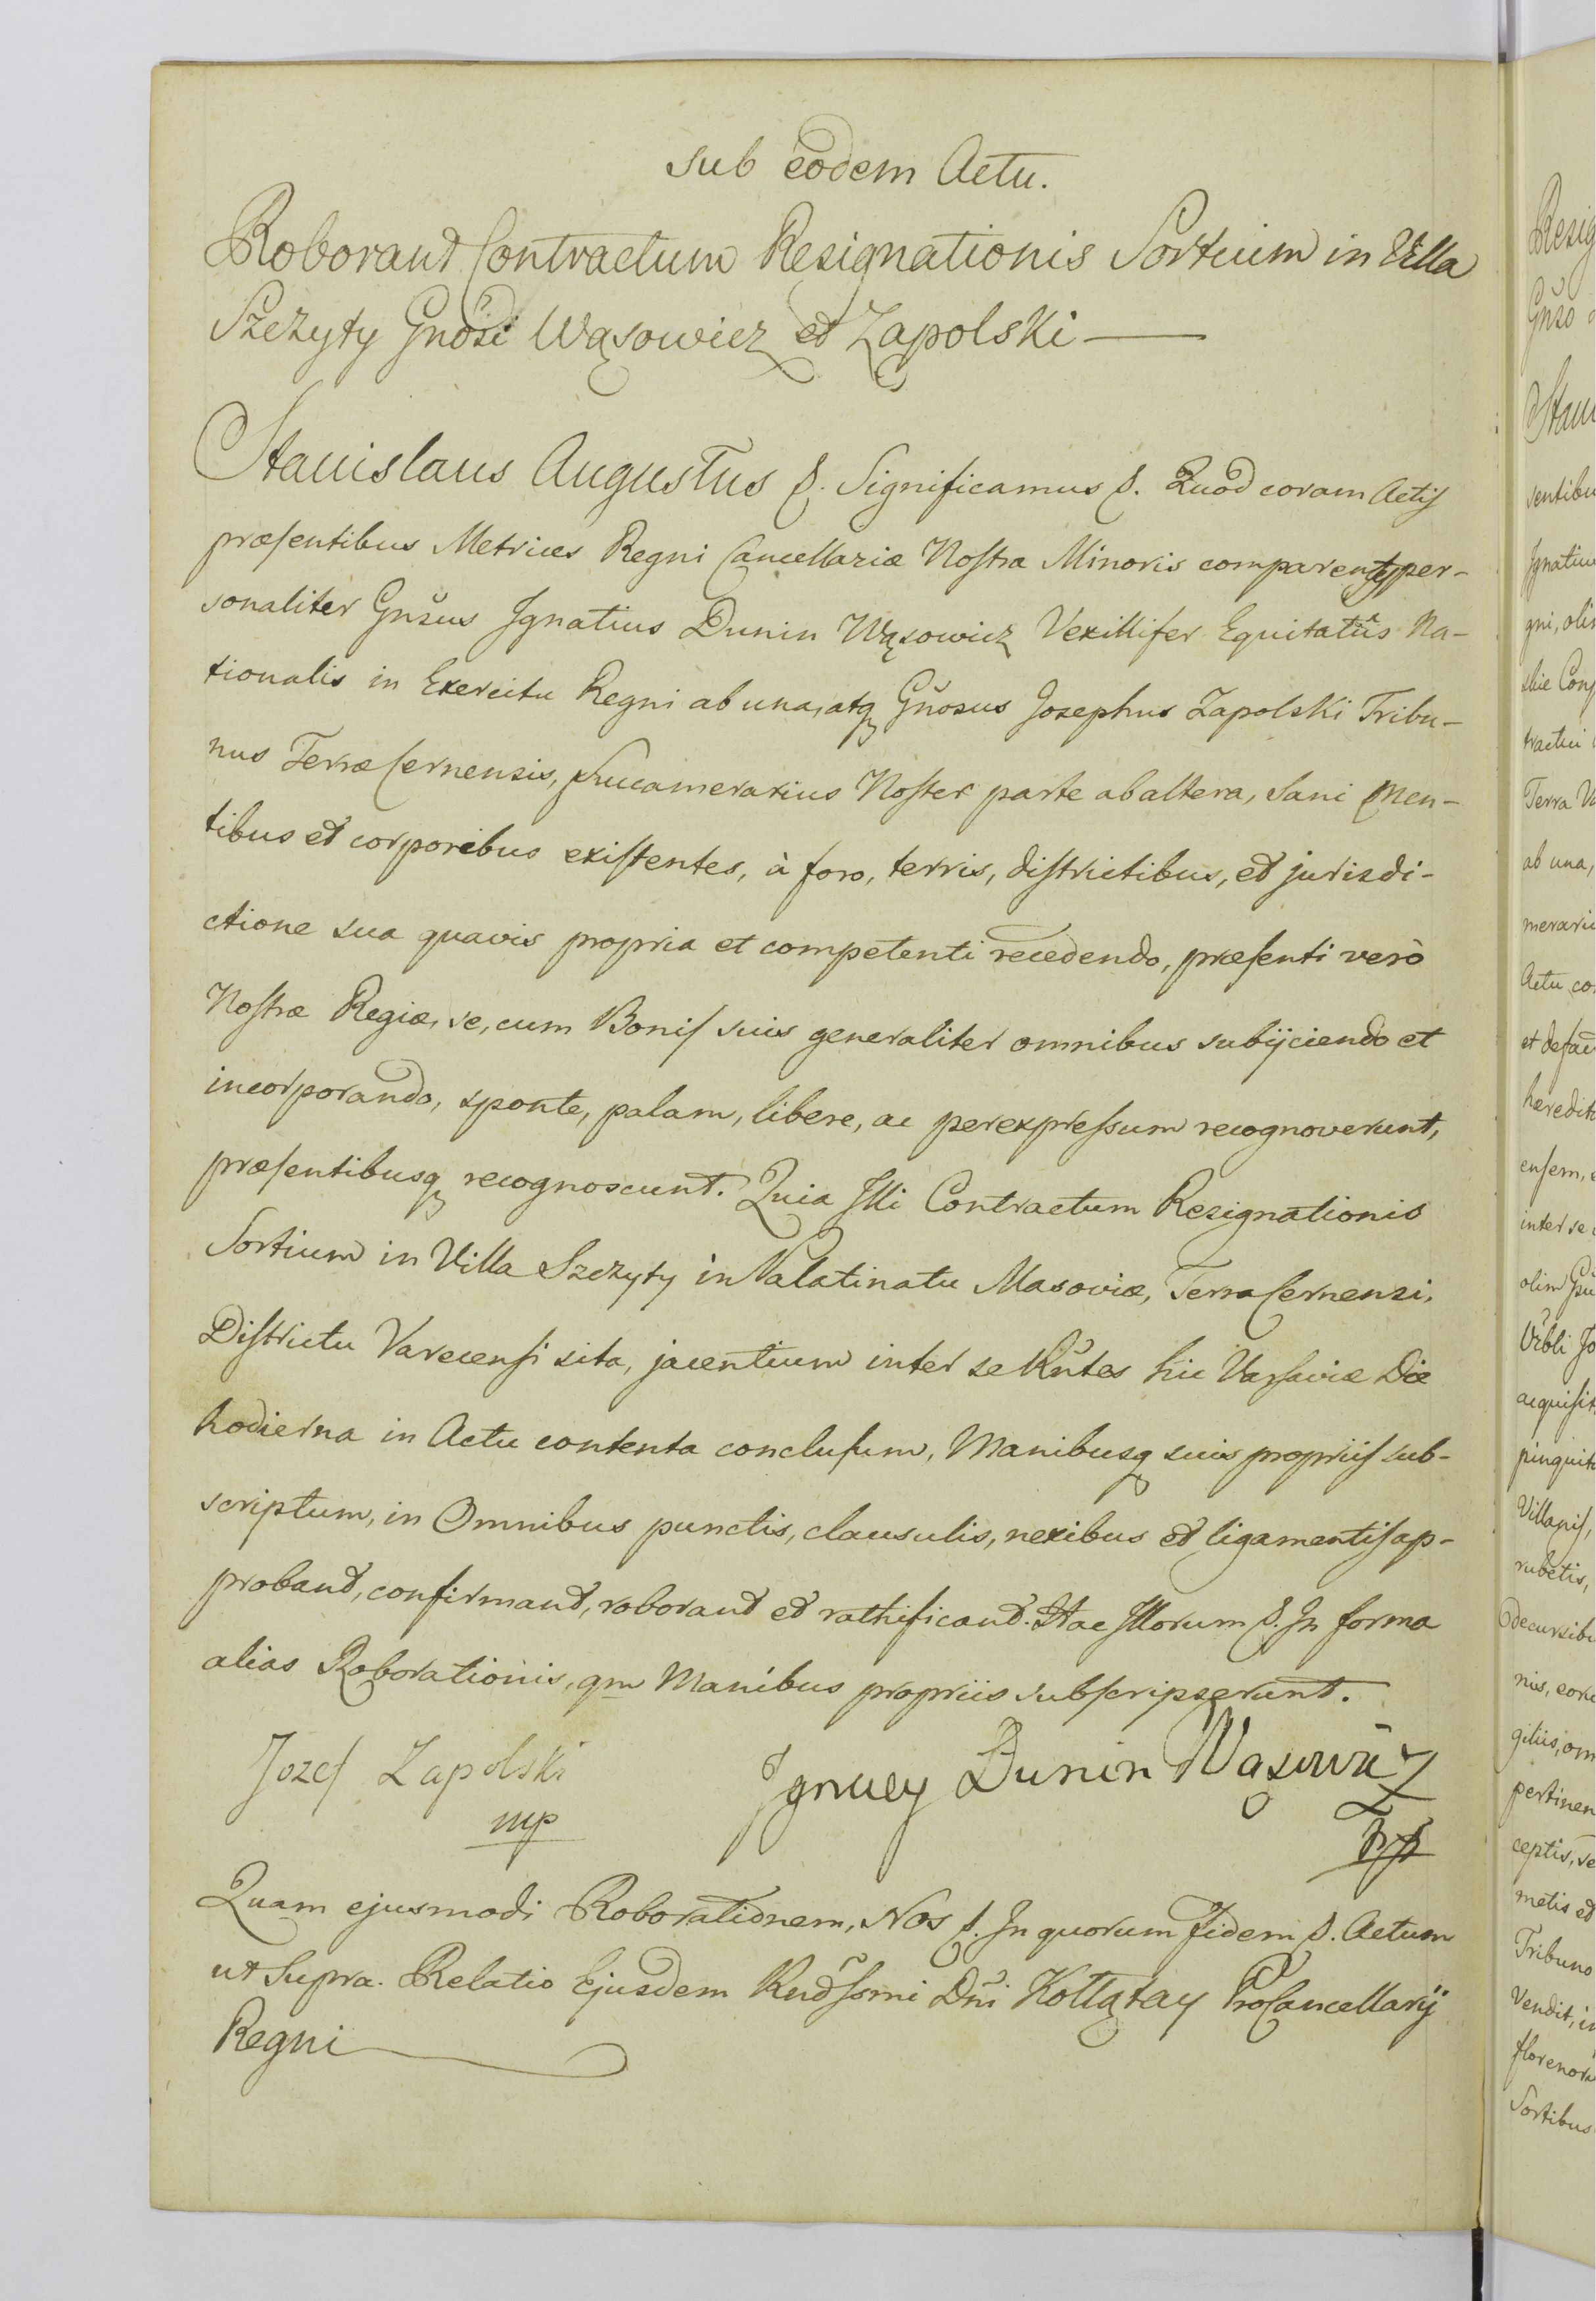 sub eodem Actu.
Roborant Contractum Resignationis Sortium in Villa
Szczyty Gnosi Wąsowicz et Zapolski —
Stanislaus Augustus &. Significamus &. Quod coram Actis
præsentibus Metrices Regni Cancellariæ Nostra Minoris comparentes per-
sonaliter Gnsus Ignatius Dunin Wąsowicz Vexillifer Equitatûs Na-
tionalis in Exercitu Regni ab una, atq Gnosus Josephus Zapolski Tribu-
nus Terræ Cernensis, Succamerarius Noster parte ab altera, Sani men-
tibus et corporibus existentes, à foro, terris, districtibus, et jurisdi-
ctione sua quavis propria et competenti recedendo, præsenti verò
Nostræ Regiæ, se, cum Bonis suis generaliter omnibus subijciendo et
incorporando, sponte, palam, libere, ac perexpressum recognoverunt,
præsentibusq recognoscunt. Quia Illi Contractum Resignationis
Sortium in Villa Szczyty in Palatinatu Masoviæ, Terra Cernensi,
Districtu Varecensi sita, jacentium inter se Rntes hic Varsaviæ Die
hodierna in Actu contenta conclusum, Manibusq suis propriis sub-
scriptum, in Omnibus punctis, clausulis, nexibus et ligamentis ap-
probant, confirmant, roborant et rathificant. Hac Illorum &. In forma
alias Roborationis, qm Manibus propriis subscripserunt.
Jozef Zapolski
mp
Ignacy Dunin Wąsowicz
mp
Quam ejusmodi Roborationem, Nos &. In quorum fidem &. Actum
ut Supra. Relatio Ejusdem Rndssmi Dni Kołłątay ProCancellarij
Regni
Resig
Gnso
Stani
sentibu
Ignatius
gni, olim
skie Cons
tractui
Terra Va
ab una,
merarii
Actu co
et defac
hæredit
ensem,
inter se
olim
Urbli Jo
acquisit
pinquit
Villagis,
rubetis,
decursibu
nis,
gitiis, om
pertinen
ceptis, se
metis et
Tribuno
Vendit, i
florenoru
Sortibus